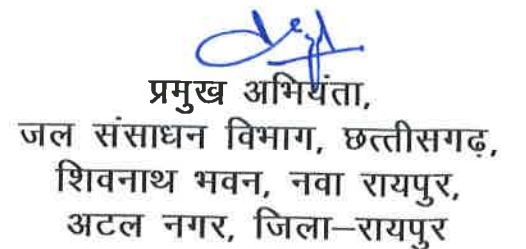 प्रमुख अभियंता,
जल संसाधन विभाग, छत्तीसगढ़,
शिवनाथ भवन, नवा रायपुर,
अटल नगर, जिला–रायपुर